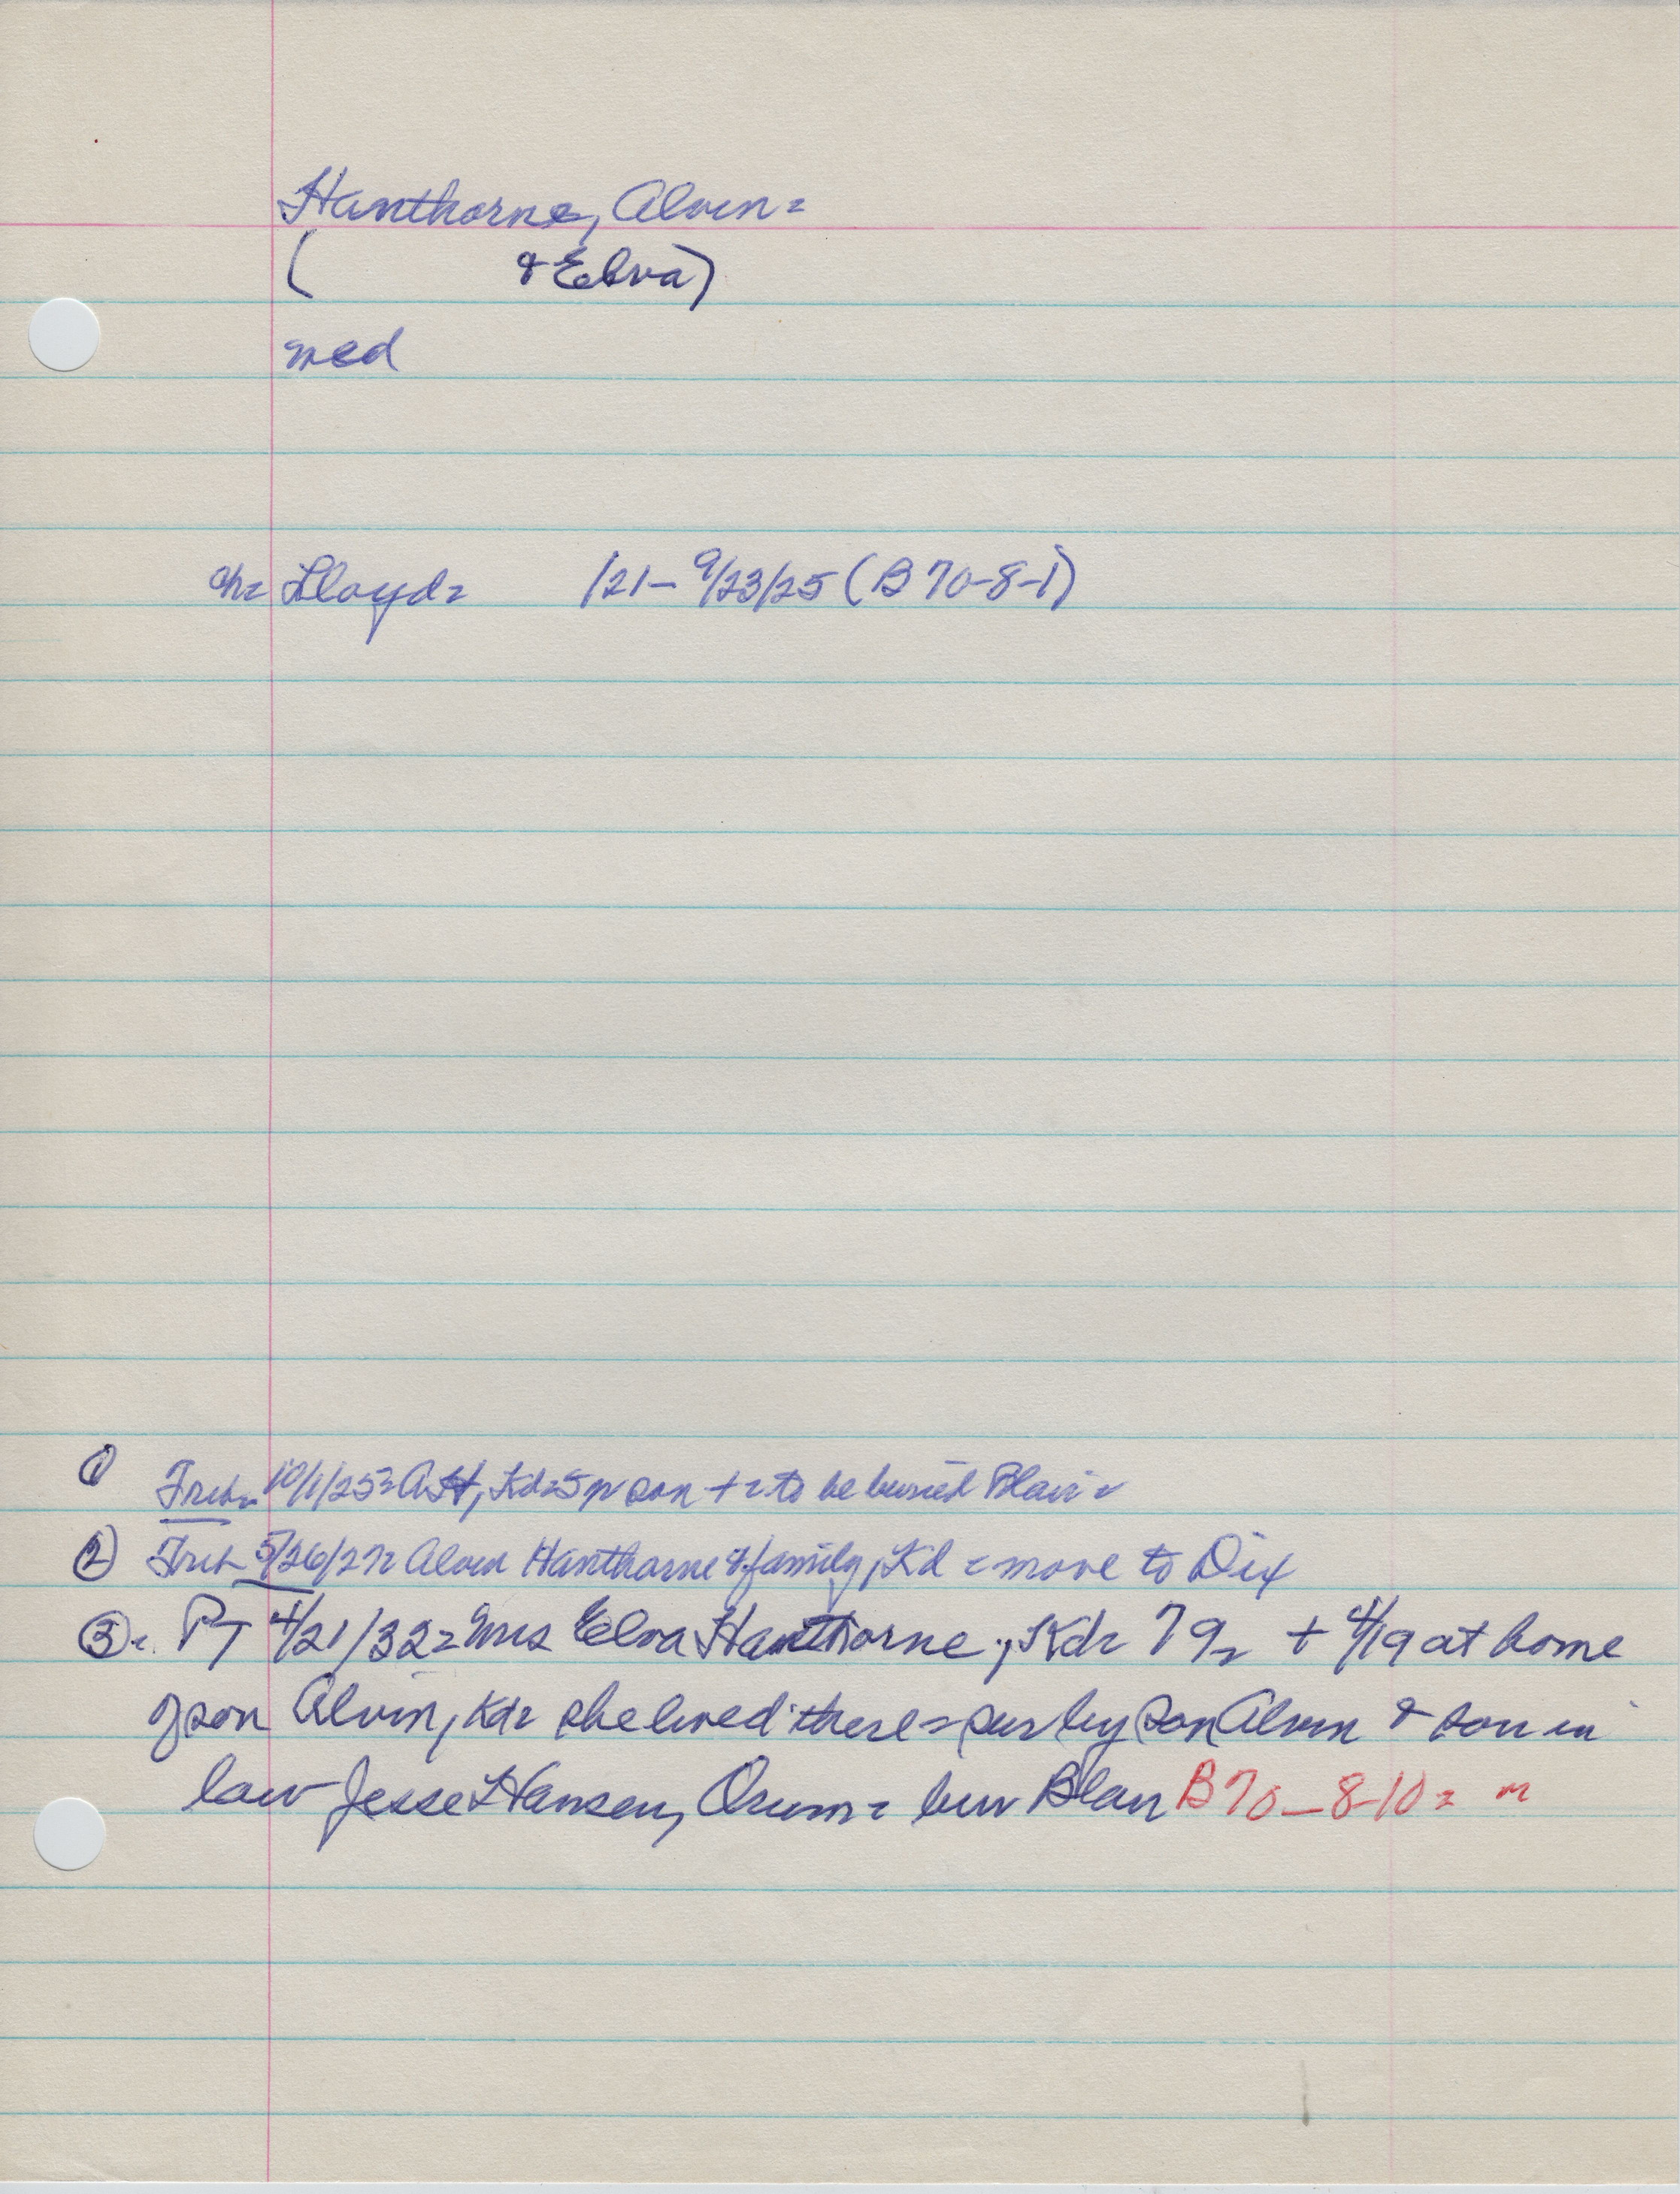 Hanthorne, Alvin=
( & Elva)
med
ch= Lloyd= /21- 9/23/25 (B 70-8-1)
① 10/1/25= AH, Kd=5 yr son += to be buried Blair=
② 5/26/27= Alvin Hanthorne & family, Kd = move to Dix
③= PT 4/21/32= Mrs Elva Hanthorne, Kd= 79= + 4/19 at home
of son Alvin, Kd= she lived there= sur by son Alvin & son in
law Jesse Hansen, Orum= bur Blair B 70-8-10=